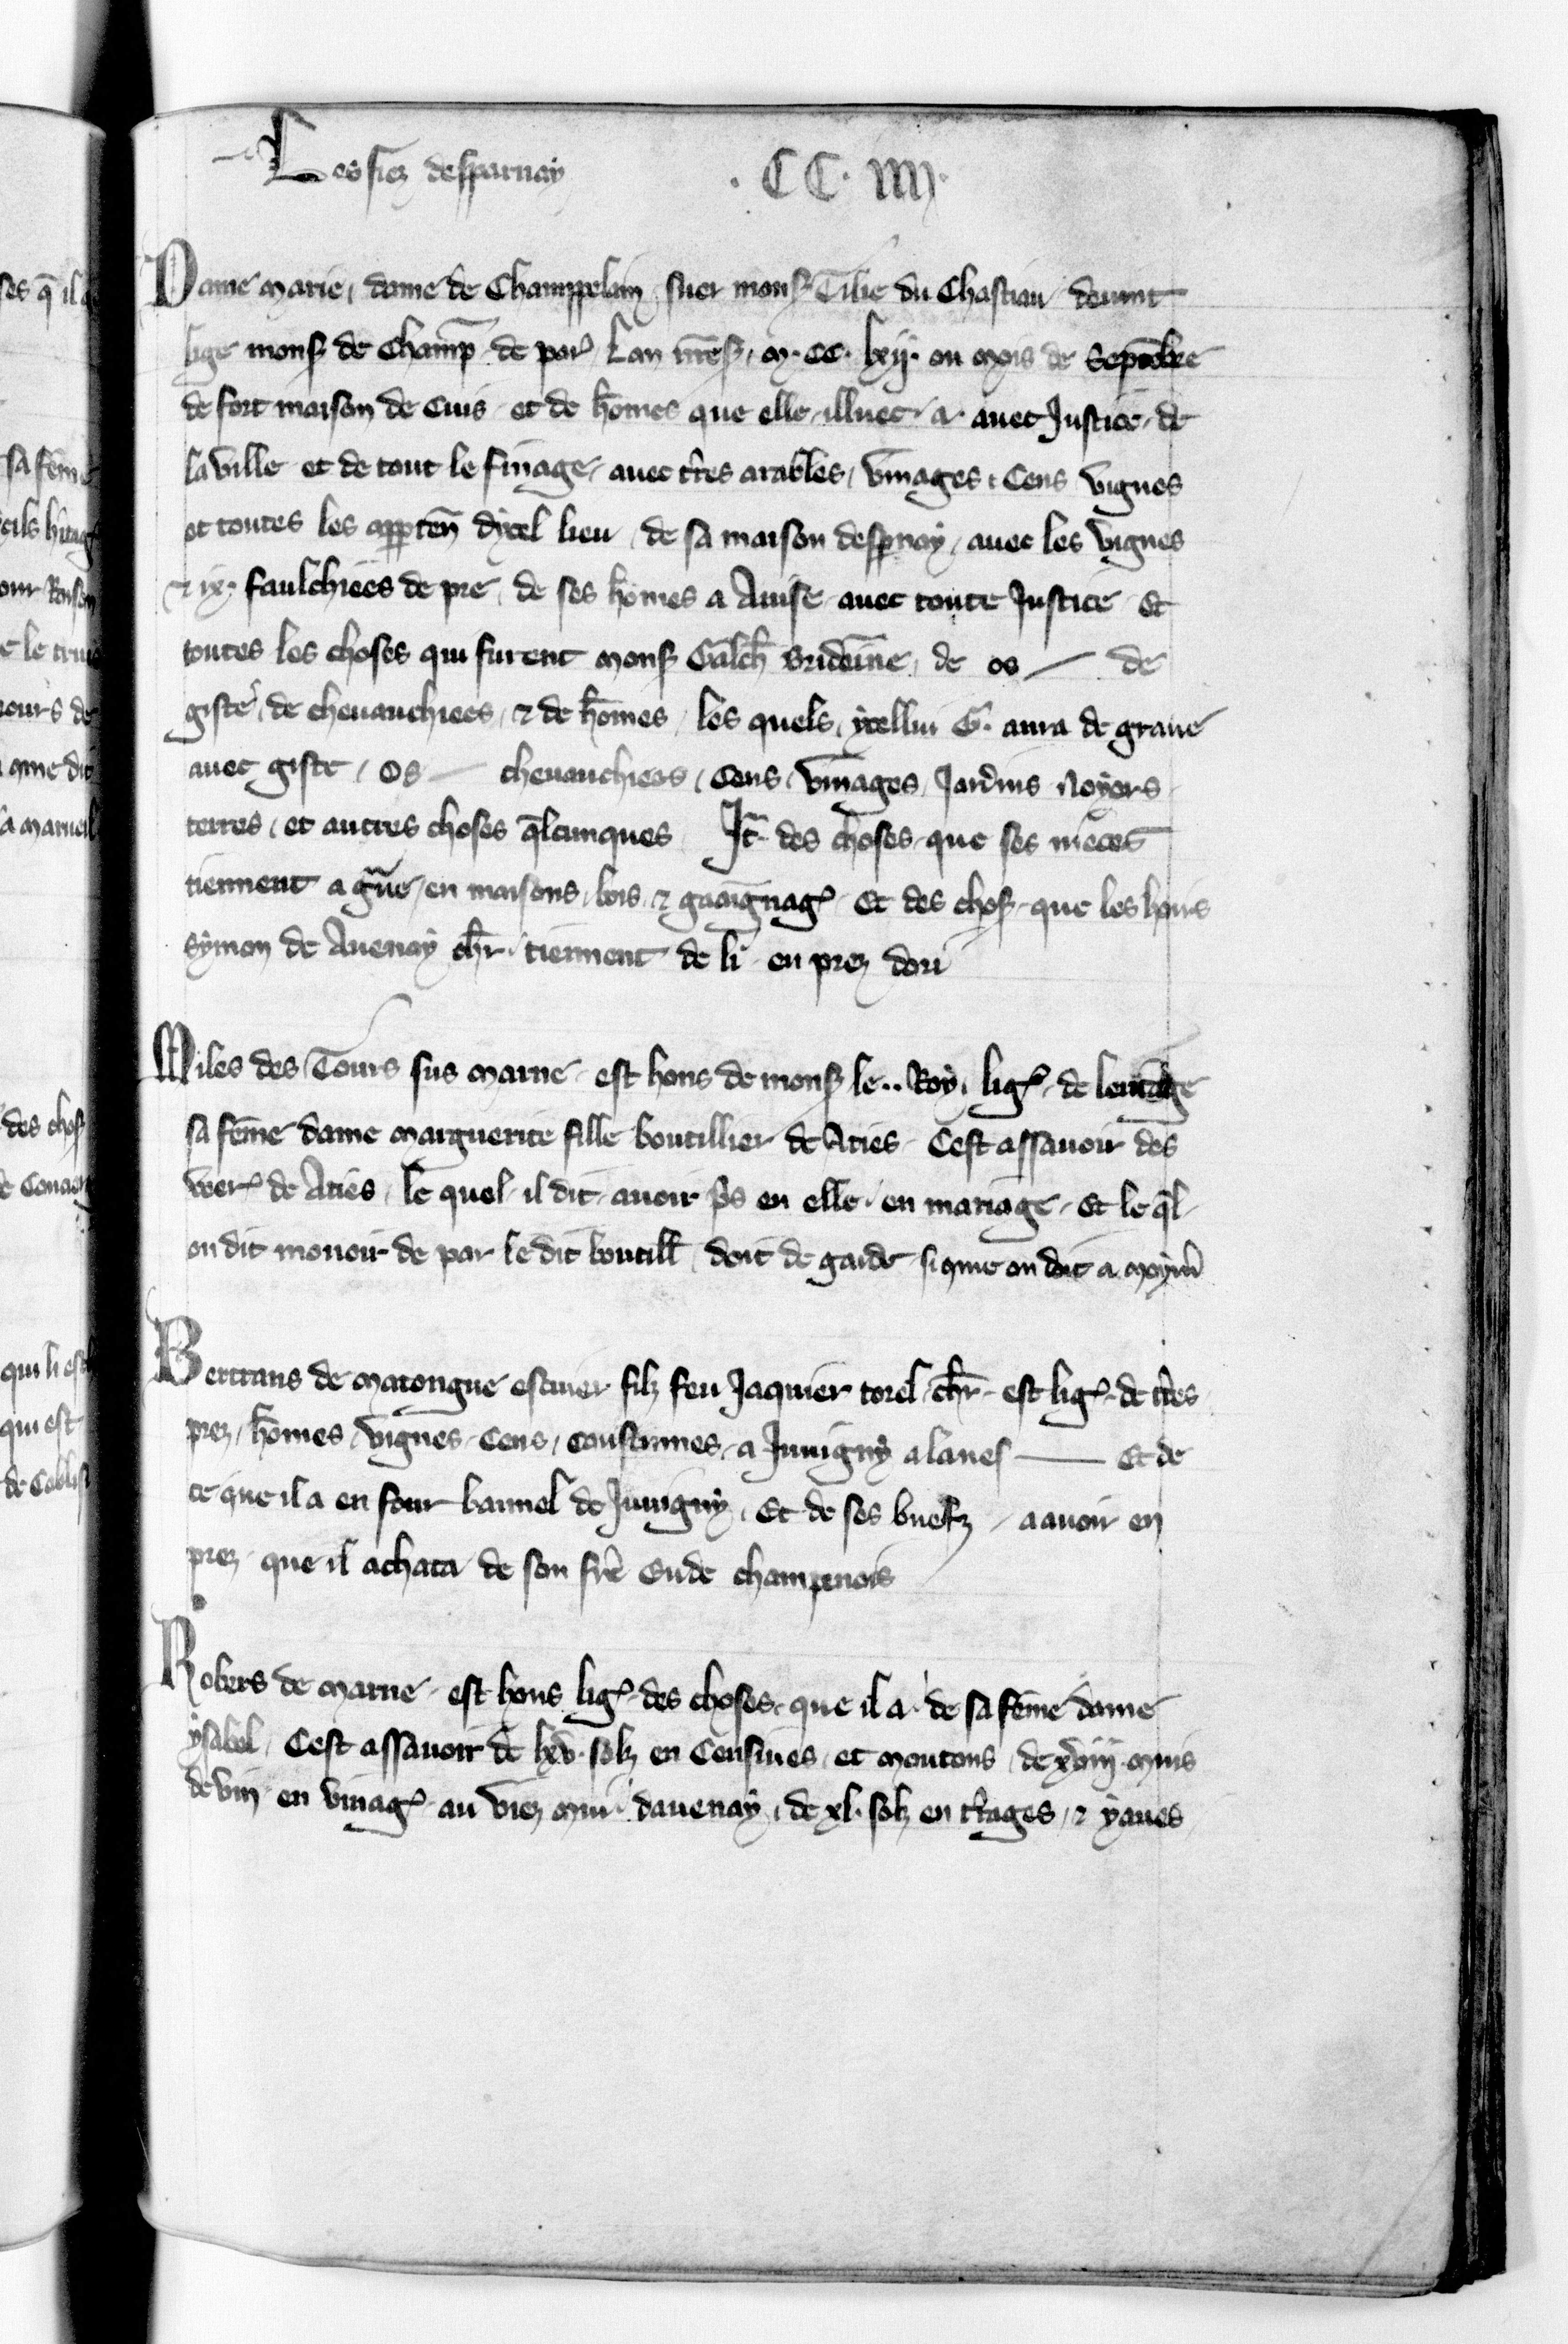 Les fiez desparnay
. CC. IIII.
Dame Marie, dame de Champpelain, suer mons Tibie du Chastiau, devint
lige mons de Champ. de par Lan nres M. CC. lxij. ou mois de Septebre
de fort maison de Cuis et de homes que elle illuec a avec Justice de
la ville et de tout le finage, avec tres arables, vinages, Cens, vignes
et toutes les apperten dycel lieu, de sa maison despnay, avec les vignes
& ix. faulchiees de pre, de ses homes a Avise avec toute Justice Et
toutes les choses qui furent mons Galch Bridoine, de os — de
giste, de chevauchiees, & de homes, les quels, ycellui G. aura de grave
avec giste, Os — chevauchiees, Cens, vinages, Jardins, Noyers
terres, et autres choses qlcunques. It des choses que ses nieces
tiennent a gve, en maisons, bois, & gaaignag Et des chos que les hoirs
Symon de Avenay chr. tiennent de li en prez dori
Miles des Tours sus Marne est hons de mons le .. Roy, lig, de leritage
sa feme dame Marguerite fille boutillier de Aties Cest assavoir des
de Aties, le quel il dit avoir ps en elle en mariage, Et le ql
on dit movoir de par le dit boutill doit de garde si que on doit a Moym
Bertrans de Matongne escuier filz feu Jaquier torel chr. est lig de tres
prez, homes, vignes, Cens, coustumes, a Juvigny a laues — Et de
ce que il a en four bannel de Juvigny, Et de ses buefz, a avoir en
prez que il achata de son fre Eude champenois
Robers de Marne est hons lig des choses que il a de sa feme dame
ysabel, Cest assavoir de lxv. solz en Censives, et moutons, de xviij. muis
de vin en vinag au viez mui davenay, de xl. solz en trages, & yaues